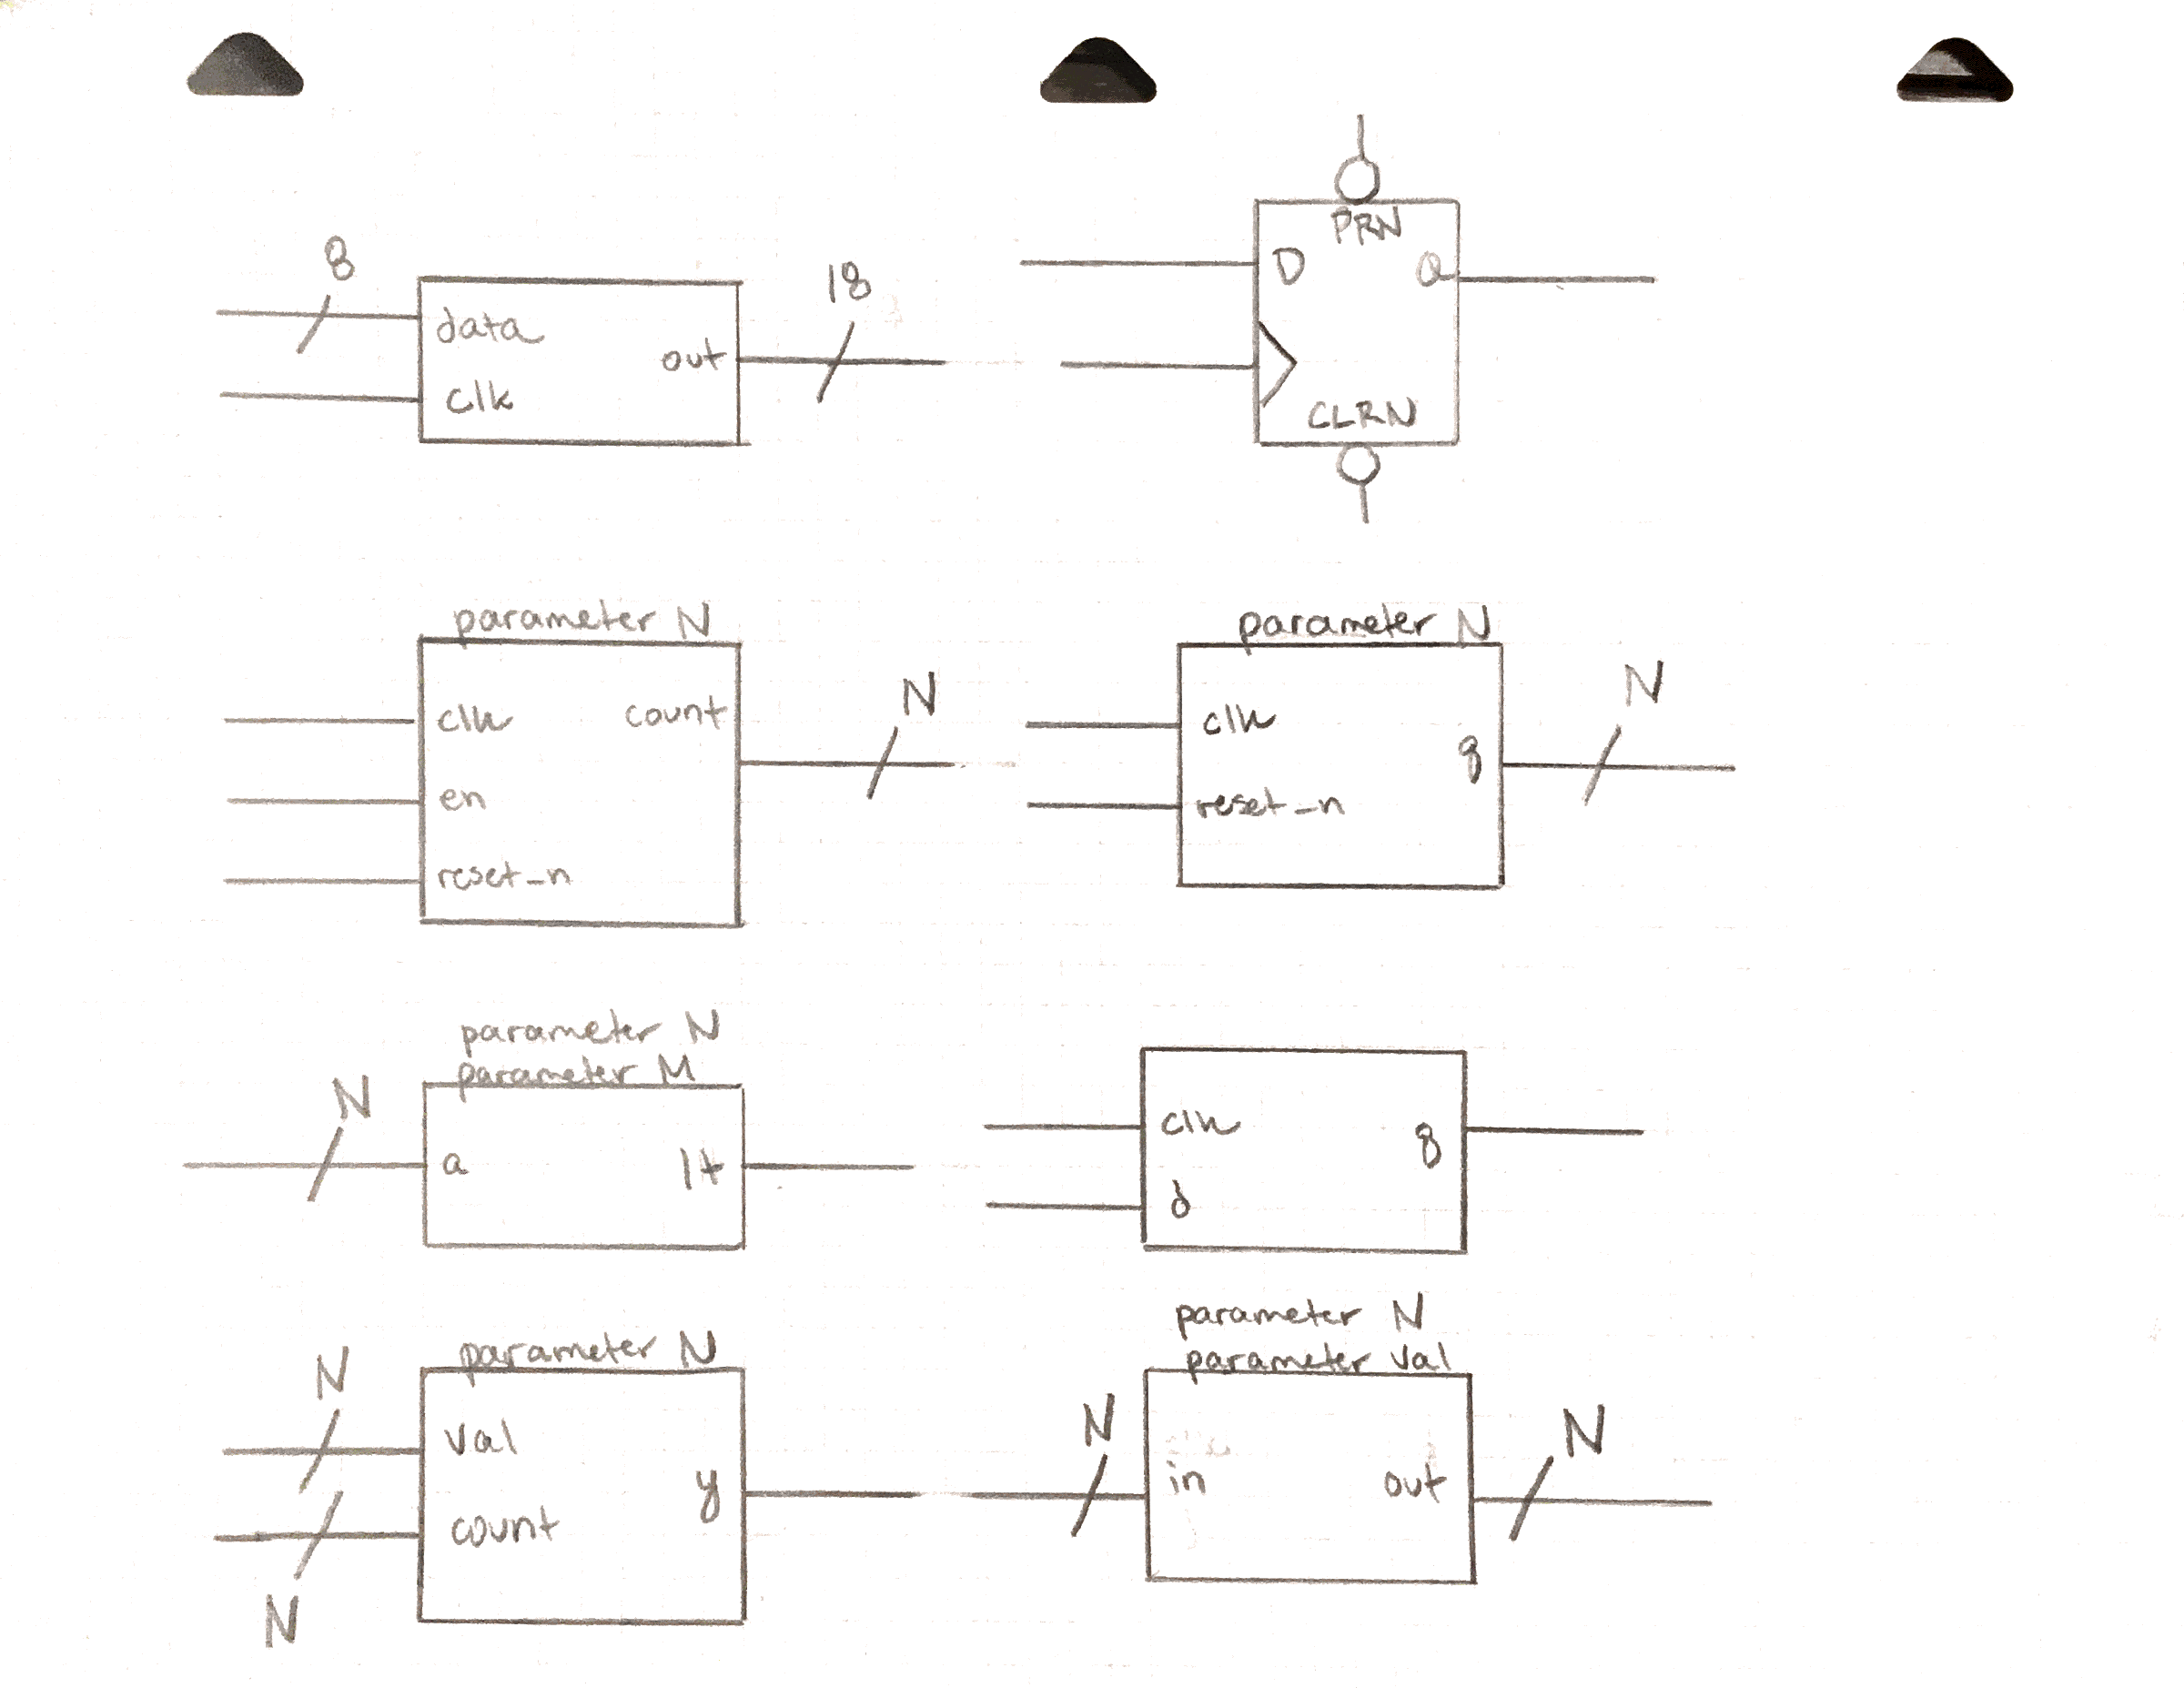 8
data
clk
out
18
PRN
D
Q
CLRN
parameter N
clk
count
en
reset_n
N
parameter N
clk
q
reset_n
N
parameter N
parameter M
N
a
lt
clk
q
d
parameter N
N
val
count
y
N
parameter N
parameter val
N
in
out
N